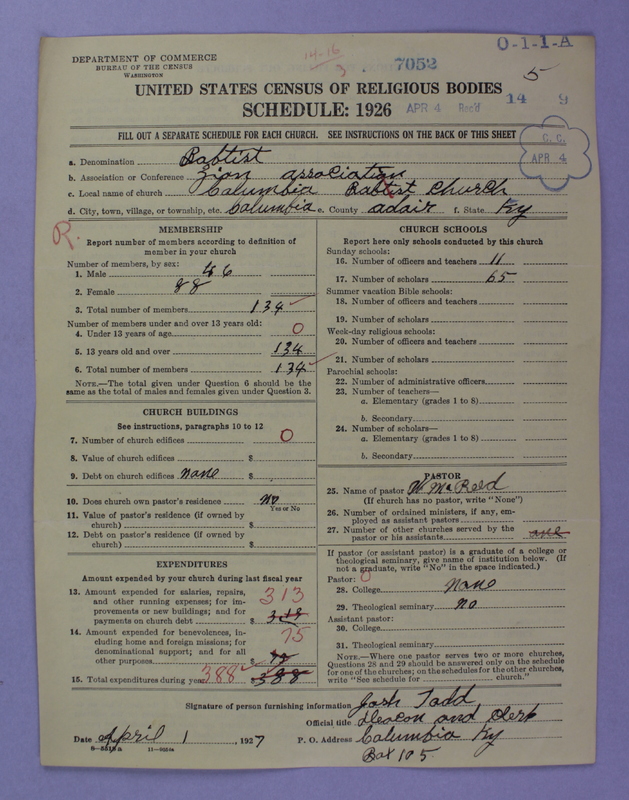 O-1-1-A
14-16
3
7052
5
DEPARTMENT OF COMMERCE
BUREAU OF THE CENSUS
WASHINGTON
UNITED STATES CENSUS OF RELIGIOUS BODIES
SCHEDULE: 1926
APR 4 Rec'd
14 9
FILL OUT A SEPARATE SCHEDULE FOR EACH CHURCH. SEE INSTRUCTIONS ON THE BACK OF THIS SHEET
C. C.
APR 4
a. Denomination Babtist
b. Association or Conference Zion association
c. Local name of church Columbia Babtist Church
d. City, town, village, or township, etc. Columbia e. County adair f. State Ky
R.
MEMBERSHIP
Report number of members according to definition of
member in your church
Number of members, by sex:
1. Male 46
2. Female 88
3. Total number of members 134
Number of members under and over 13 years old:
4. Under 13 years of age 0
5. 13 years old and over 134
6. Total number of members 134
NOTE.—The total given under Question 6 should be the
same as the total of males and females given under Question 3.
CHURCH BUILDINGS
See instructions, paragraphs 10 to 12
7. Number of church edifices 0
8. Value of church edifices $
9. Debt on church edifices none $
10. Does church own pastor's residence no
Yes or No
11. Value of pastor's residence (if owned by
church) $
12. Debt on pastor's residence (if owned by
church) $
EXPENDITURES
Amount expended by your church during last fiscal year
13. Amount expended for salaries, repairs,
and other running expenses; for im-
provements or new buildings; and for
payments on church debt $ 313
14. Amount expended for benevolences, in-
cluding home and foreign missions; for
denominational support; and for all
other purposes $ 75
15. Total expenditures during year 388 $ 388
CHURCH SCHOOLS
Report here only schools conducted by this church
Sunday schools:
16. Number of officers and teachers 11
17. Number of scholars 65
Summer vacation Bible schools:
18. Number of officers and teachers
19. Number of scholars
Week-day religious schools:
20. Number of officers and teachers
21. Number of scholars
Parochial schools:
22. Number of administrative officers
23. Number of teachers—
a. Elementary (grades 1 to 8)
b. Secondary
24. Number of scholars—
a. Elementary (grades 1 to 8)
b. Secondary
PASTOR
25. Name of pastor
(If church has no pastor, write "None")
26. Number of ordained ministers, if any, em-
ployed as assistant pastors
27. Number of other churches served by the
pastor or his assistants one
If pastor (or assistant pastor) is a graduate of a college or
theological seminary, give name of institution below. (If
not a graduate, write "No" in the space indicated.)
Pastor: 0
28. College None
29. Theological seminary no
Assistant pastor:
30. College
31. Theological seminary
NOTE.—Where one pastor serves two or more churches,
Questions 28 and 29 should be answered only on the schedule
for one of the churches; on the schedules for the other churches,
write "See schedule for church."
Signature of person furnishing information Josh Todd
Official title Deacon and Clerk
Date April 1, 1927 P. O. Address Columbia Ky
Box 105